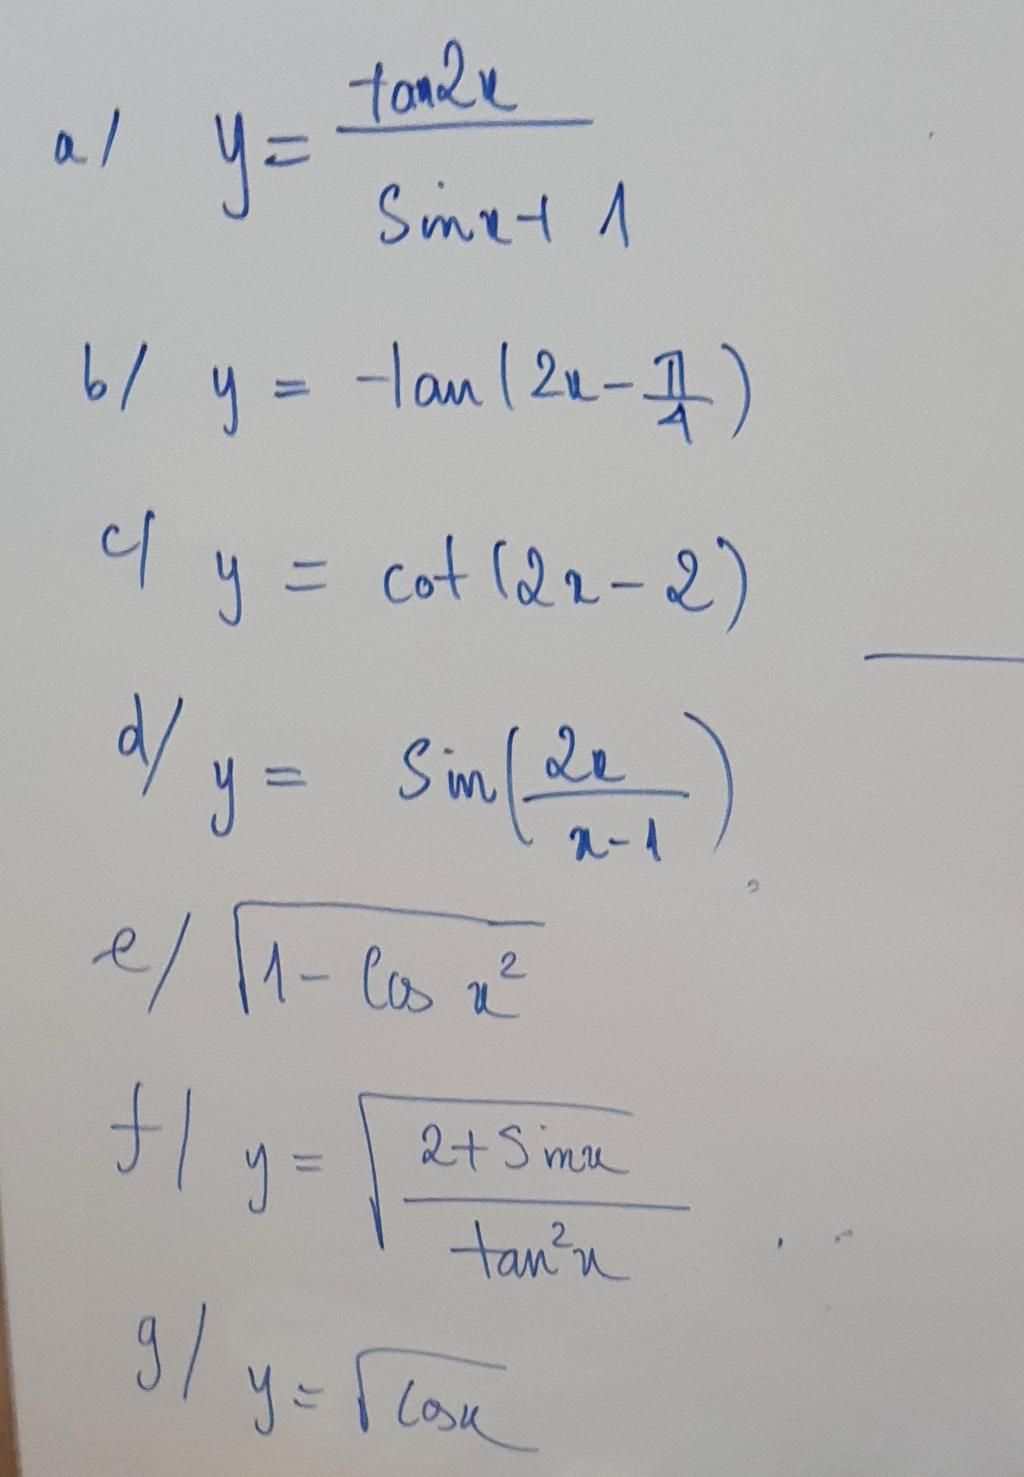 a/ y = tan2x / (sinx + 1)
b/ y = tan(2x - π/4)
c/ y = cot(2x - 2)
d/ y = sin(2x / (x - 1))
e/ √(1 - cos x²)
f/ y = √((2 + sinx) / tan²x)
g/ y = √cosx